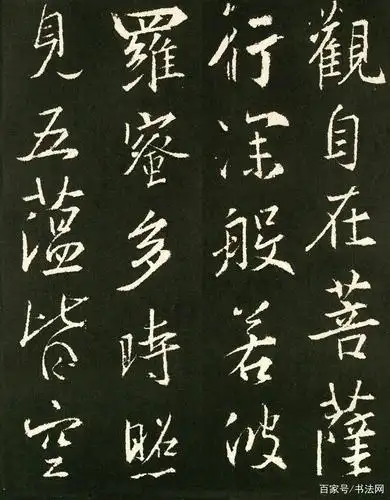 觀自在菩薩
行深般若波
羅蜜多時照
見五蘊皆空
百家号/书法网